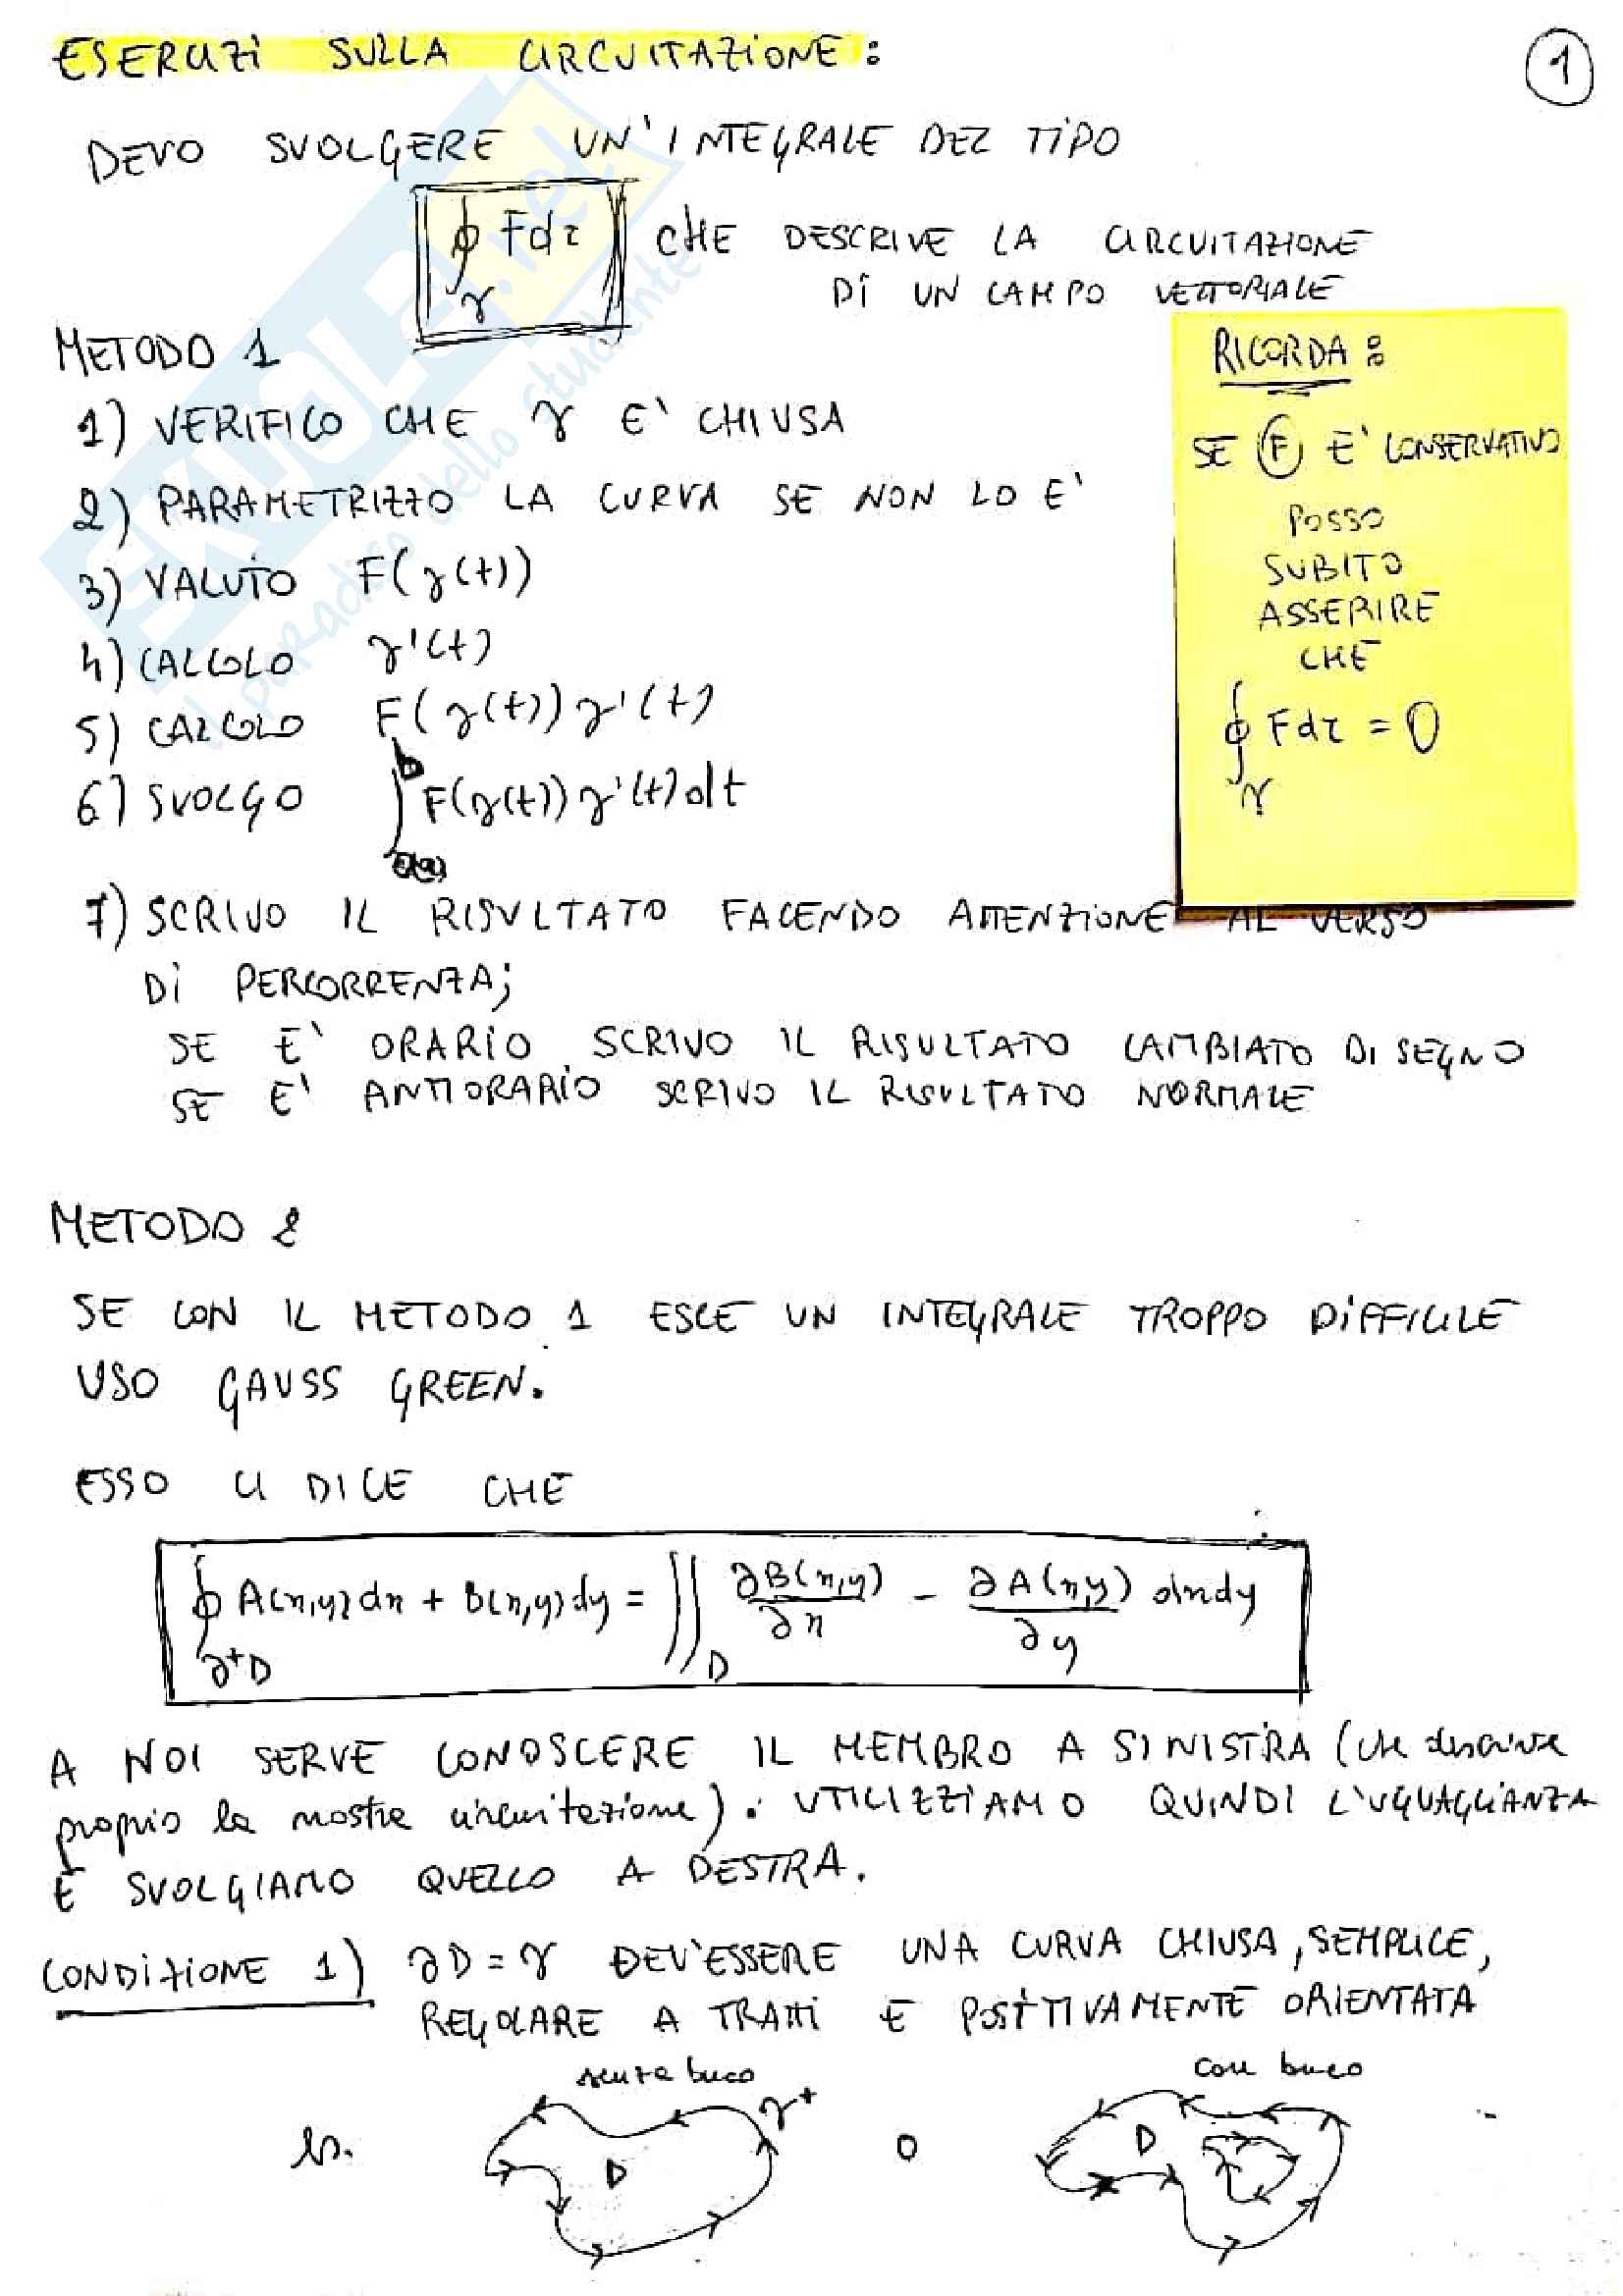 ESERCIZI SULLA CIRCUITAZIONE:
1
DEVO SVOLGERE UN'INTEGRALE DEL TIPO
∮γ Fdτ CHE DESCRIVE LA CIRCUITAZIONE
DI UN CAMPO VETTORIALE
METODO 1
1) VERIFICO CHE γ E' CHIUSA
2) PARAMETRIZZO LA CURVA SE NON LO E'
3) VALUTO F(γ(t))
4) CALCOLO γ'(t)
5) CALCOLO F(γ(t))γ'(t)
6) SVOLGO ∫ F(γ(t))γ'(t)dt
RICORDA:
SE F E' CONSERVATIVO
POSSO
SUBITO
ASSERIRE
CHE
∮γ Fdτ = 0
7) SCRIVO IL RISULTATO FACENDO ATTENZIONE AL VERSO
DI PERCORRENZA;
SE E' ORARIO SCRIVO IL RISULTATO CAMBIATO DI SEGNO
SE E' ANTIORARIO SCRIVO IL RISULTATO NORMALE
METODO 2
SE CON IL METODO 1 ESCE UN INTEGRALE TROPPO DIFFICILE
USO GAUSS GREEN.
ESSO CI DICE CHE
∮∂+D A(x,y)dx + B(x,y)dy = ∬D ∂B(x,y)/∂x - ∂A(x,y)/∂y dxdy
A NOI SERVE CONOSCERE IL MEMBRO A SINISTRA (che descrive
proprio la nostra circuitazione). UTILIZZIAMO QUINDI L'UGUAGLIANZA
E SVOLGIAMO QUELLO A DESTRA.
CONDIZIONE 1) ∂D = γ DEV'ESSERE UNA CURVA CHIUSA, SEMPLICE,
REGOLARE A TRATTI E POSITIVAMENTE ORIENTATA
senza buco
con buco
es. D γ+ o D
SKUOLA.net
il paradiso dello studente